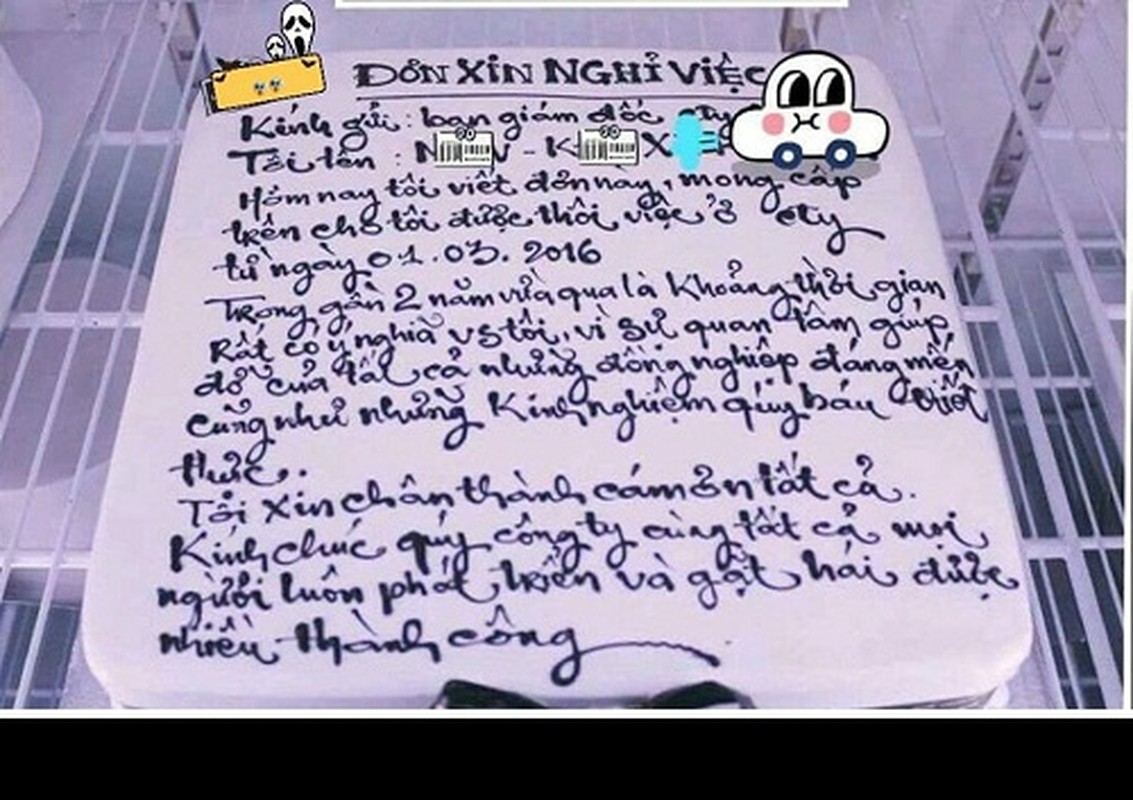 ĐƠN XIN NGHỈ VIỆC
Kính gửi : ban giám đốc cty
Tôi tên : - X
Hôm nay tôi viết đơn này, mong cấp
trên cho tôi được thôi việc ở cty
từ ngày 01.03.2016
Trong gần 2 năm vừa qua là Khoảng thời gian
Rất có ý nghĩa vs tôi, vì sự quan tâm giúp
đỡ của tất cả những đồng nghiệp đáng mến
cũng như những Kinh nghiệm qúy báu
thức.
Tôi xin chân thành cám ơn tất cả.
Kính chúc qúy công ty cùng tất cả mọi
người luôn phát triển và gặt hái được
nhiều thành công